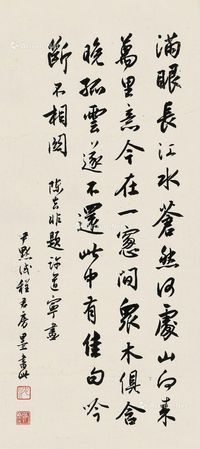 滿眼長江水蒼然何處山向來
萬里意今在一窗間眾木俱含
晚孤雲遂不還此中有佳句吟
斷不相關
陳去非題許道寧畫
尹默試程君房墨書